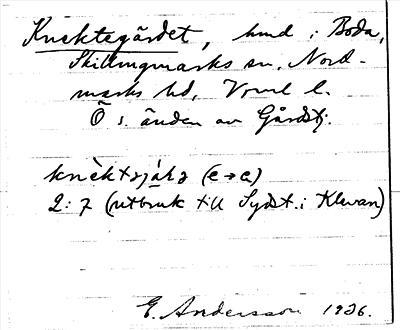 Knektegärdet, hmd i Boda,
Skillingmarks sn, Nord-
marks hd, Vrml l.
Ö s. änden av Gårdstj.
knèktsjálə (e→a)
2:7 (utbruk till Sydst. i Klevan)
E. Andersson 1926.